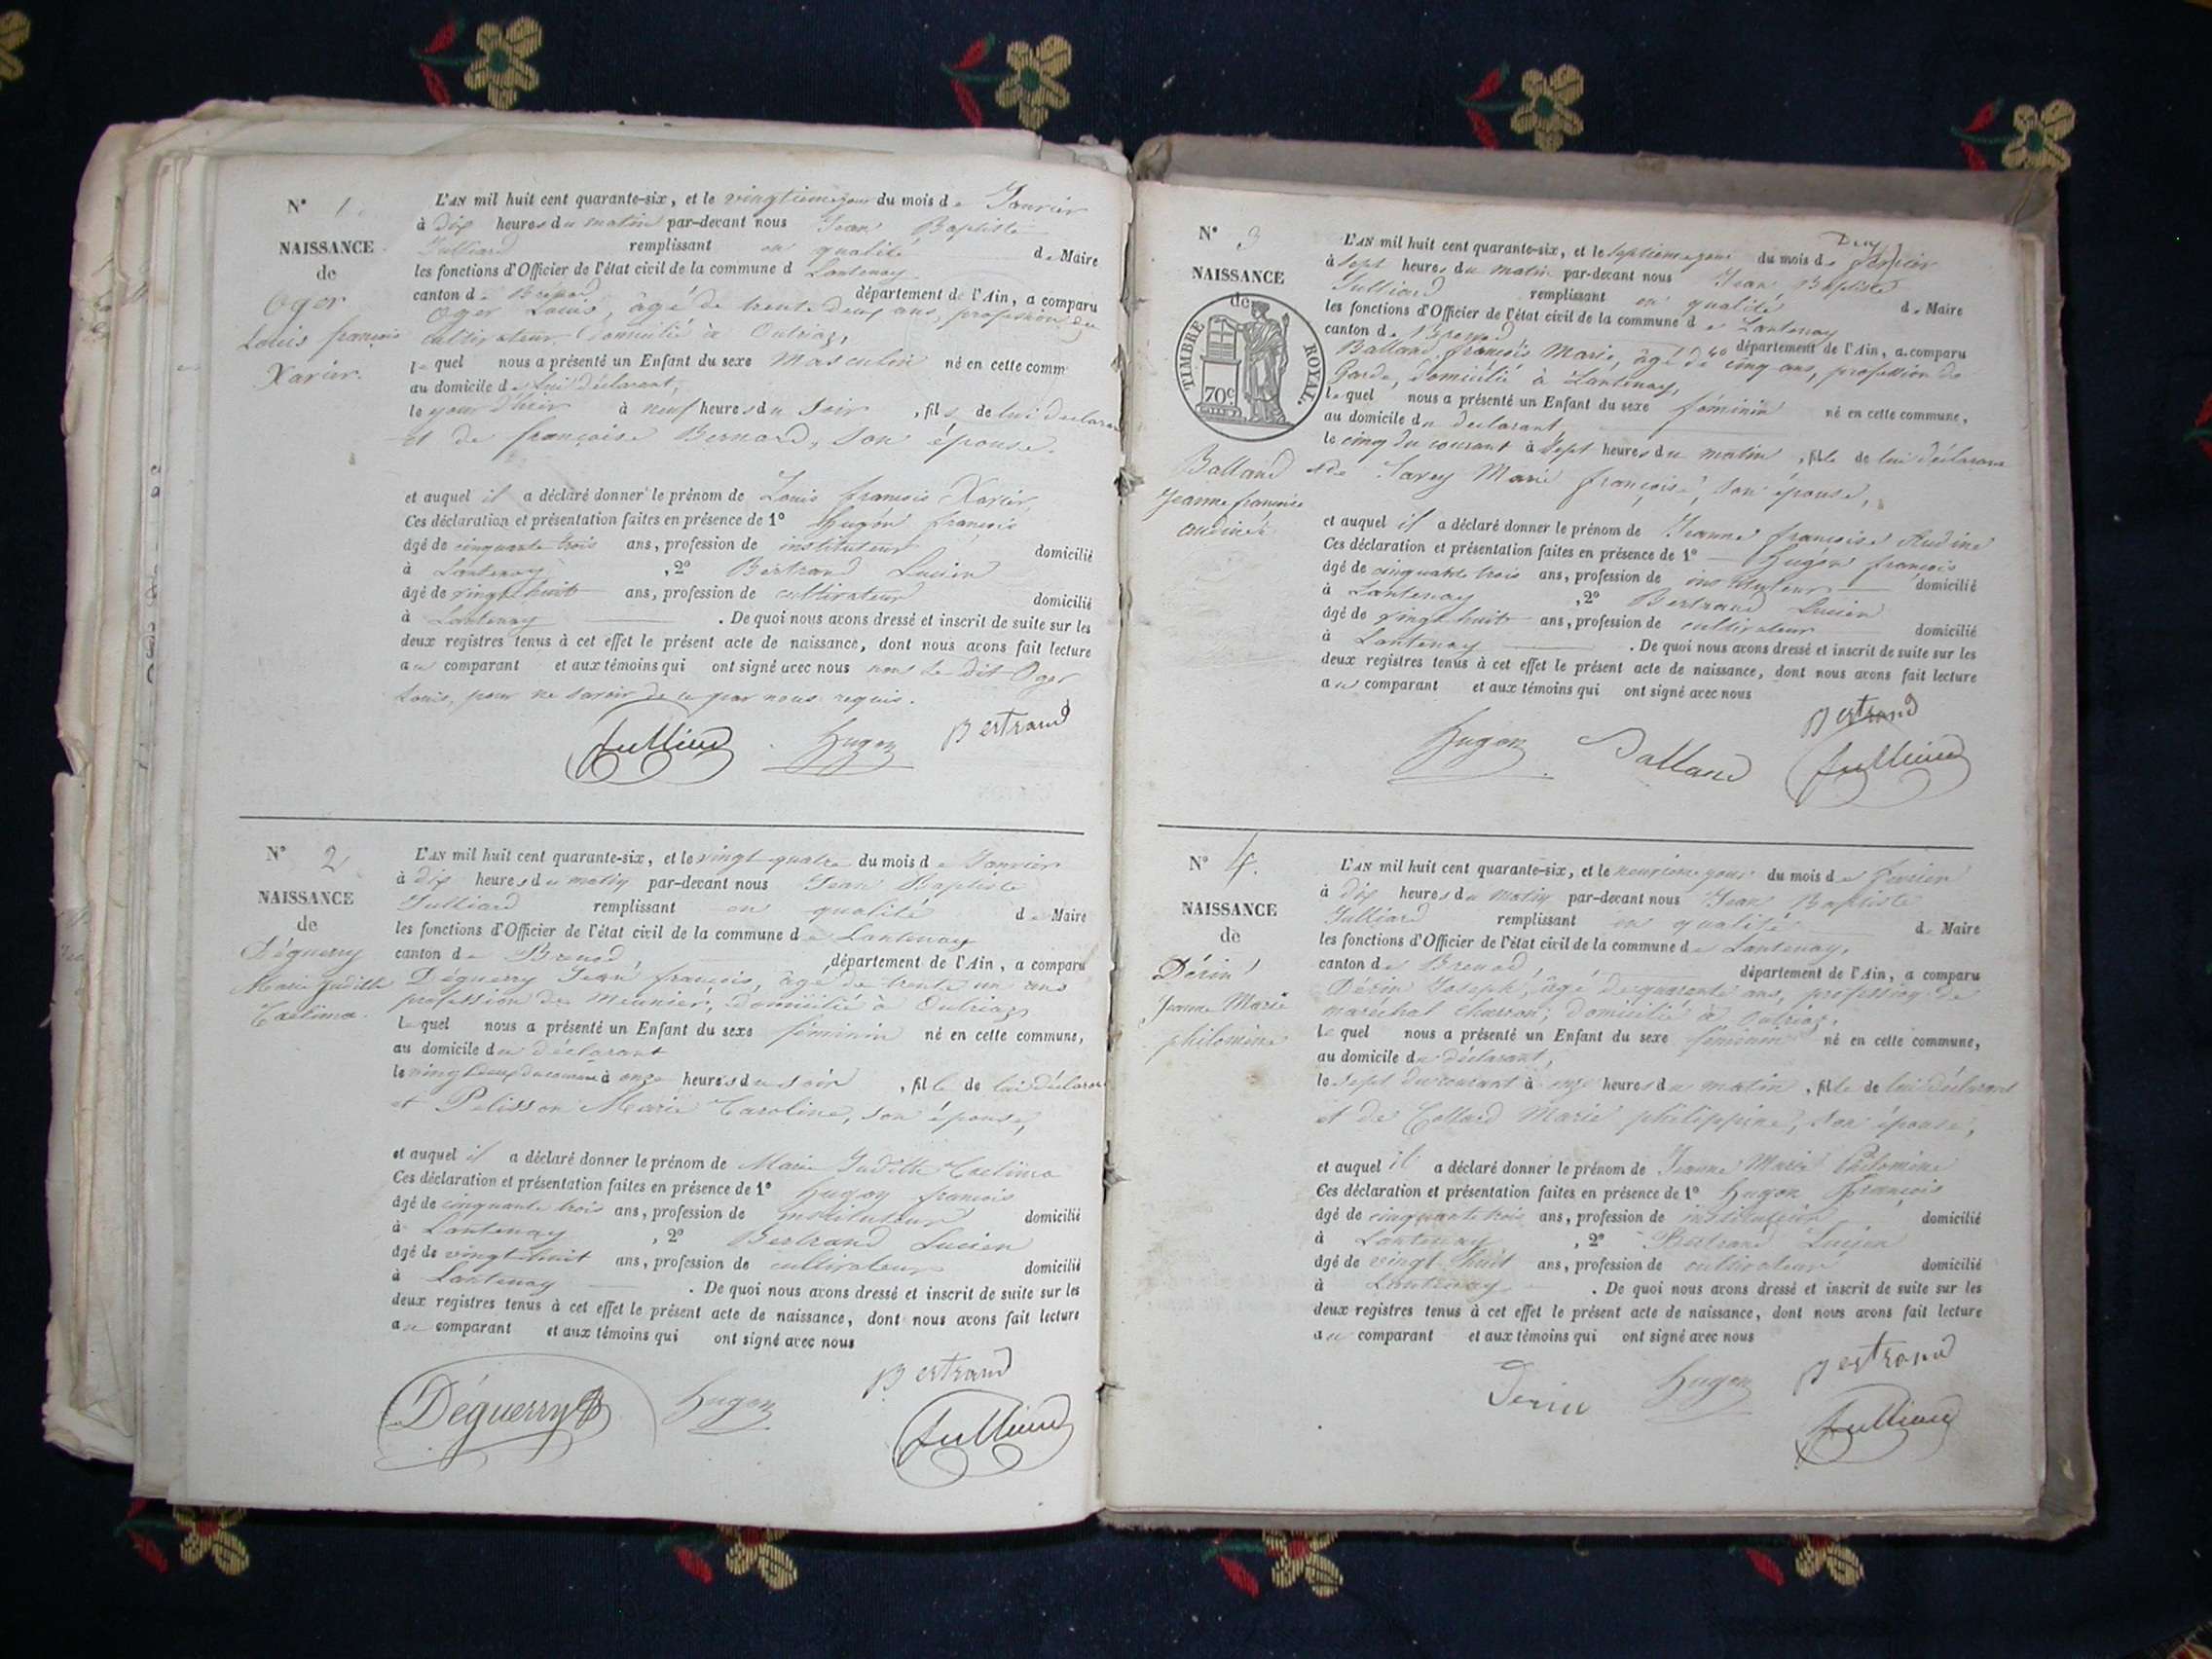 N° 1
NAISSANCE
de
Oger
Louis françois
Xavier.
L'AN mil huit cent quarante-six, et le vingtieme jour du mois de Janvier
à dix heures du matin par-devant nous Jean Baptiste
Julliard remplissant en qualité de Maire
les fonctions d'Officier de l'état civil de la commune d Lantenay
canton de Brenod département de l'Ain, a comparu
Oger Louis, âgé de trente deux ans, profession de
cultivateur, domicilié à Outriaz,
lequel nous a présenté un Enfant du sexe masculin né en cette comm
au domicile de lui déclarant,
le jour d'hier à neuf heures du soir, fils de lui declaran
et de françoise Bernard, son épouse.
et auquel il a déclaré donner le prénom de Louis françois Xavier,
Ces déclaration et présentation faites en présence de 1° hugon françois
âgé de cinquante trois ans, profession de instituteur domicilié
à Lantenay, 2° Bertrand Lucien
âgé de vingt huit ans, profession de cultivateur domicilié
à Lantenay . De quoi nous avons dressé et inscrit de suite sur les
deux registres tenus à cet effet le présent acte de naissance, dont nous avons fait lecture
au comparant et aux témoins qui ont signé avec nous non le dit Oger
Louis, pour ne savoir de ce par nous requis.
Julliard hugon Bertrand
N° 2
NAISSANCE
de
Déguerry
Marie Judith
L'AN mil huit cent quarante-six, et le vingt-quatre du mois de Janvier
à dix heures du matin par-devant nous Jean Baptiste
Julliard remplissant en qualité de Maire
les fonctions d'Officier de l'état civil de la commune de Lantenay
canton de Brenod département de l'Ain, a comparu
Déguerry Jean françois, âgé de trente un ans
profession de meunier, domicilié à Outriaz
lequel nous a présenté un Enfant du sexe féminin né en cette commune,
au domicile du déclarant
le vingt deux du courant à onze heures du soir, fille de lui déclaran
et Pelisson Marie Caroline, son épouse,
et auquel il a déclaré donner le prénom de Marie Judith
Ces déclaration et présentation faites en présence de 1° hugon françois
âgé de cinquante trois ans, profession de instituteur domicilié
à Lantenay, 2° Bertrand Lucien
âgé de vingt-huit ans, profession de cultivateur domicilié
à Lantenay . De quoi nous avons dressé et inscrit de suite sur les
deux registres tenus à cet effet le présent acte de naissance, dont nous avons fait lecture
au comparant et aux témoins qui ont signé avec nous
Déguerry hugon Bertrand
Julliard
N° 3
NAISSANCE
de
TIMBRE ROYAL.
70c.
Balland
Jeanne françoise
andine
L'AN mil huit cent quarante-six, et le septieme jour du mois de fevrier
à sept heures du matin par-devant nous Jean Baptiste
Julliard remplissant en qualité de Maire
les fonctions d'Officier de l'état civil de la commune de Lantenay
canton de Brenod département de l'Ain, a comparu
Balland françois Marie, âgé de 40 cinq ans, profession de
Garde, domicilié à Lantenay,
lequel nous a présenté un Enfant du sexe féminin né en cette commune,
au domicile du declarant,
le cinq du courant à sept heures du matin, fille de lui déclarant
et de Savey Marie françoise, son épouse,
et auquel il a déclaré donner le prénom de Jeanne françoise Andine
Ces déclaration et présentation faites en présence de 1° hugon françois
âgé de cinquante trois ans, profession de instituteur domicilié
à Lantenay, 2° Bertrand Lucien
âgé de vingt huit ans, profession de cultivateur domicilié
à Lantenay . De quoi nous avons dressé et inscrit de suite sur les
deux registres tenus à cet effet le présent acte de naissance, dont nous avons fait lecture
au comparant et aux témoins qui ont signé avec nous
Bertrand
hugon Balland Julliard
N° 4.
NAISSANCE
de
Dérin
Jeanne Marie
philomine
L'AN mil huit cent quarante-six, et le neuvieme jour du mois de fevrier
à dix heures du matin par-devant nous Jean Baptiste
Julliard remplissant en qualité de Maire
les fonctions d'Officier de l'état civil de la commune de Lantenay,
canton de Brenod département de l'Ain, a comparu
Dérin Joseph, âgé de quarante ans, profession de
maréchal charron, domicilié à Outriaz,
lequel nous a présenté un Enfant du sexe féminin né en cette commune,
au domicile du déclarant,
le sept du courant à onze heures du matin, fille de lui déclarant
et de Collard Marie philippine, son épouse,
et auquel il a déclaré donner le prénom de Jeanne Marie Philomine
Ces déclaration et présentation faites en présence de 1° hugon françois
âgé de cinquante trois ans, profession de instituteur domicilié
à Lantenay, 2° Bertrand Lucien
âgé de vingt huit ans, profession de cultivateur domicilié
à Lantenay . De quoi nous avons dressé et inscrit de suite sur les
deux registres tenus à cet effet le présent acte de naissance, dont nous avons fait lecture
au comparant et aux témoins qui ont signé avec nous
Derin hugon Bertrand
Julliard